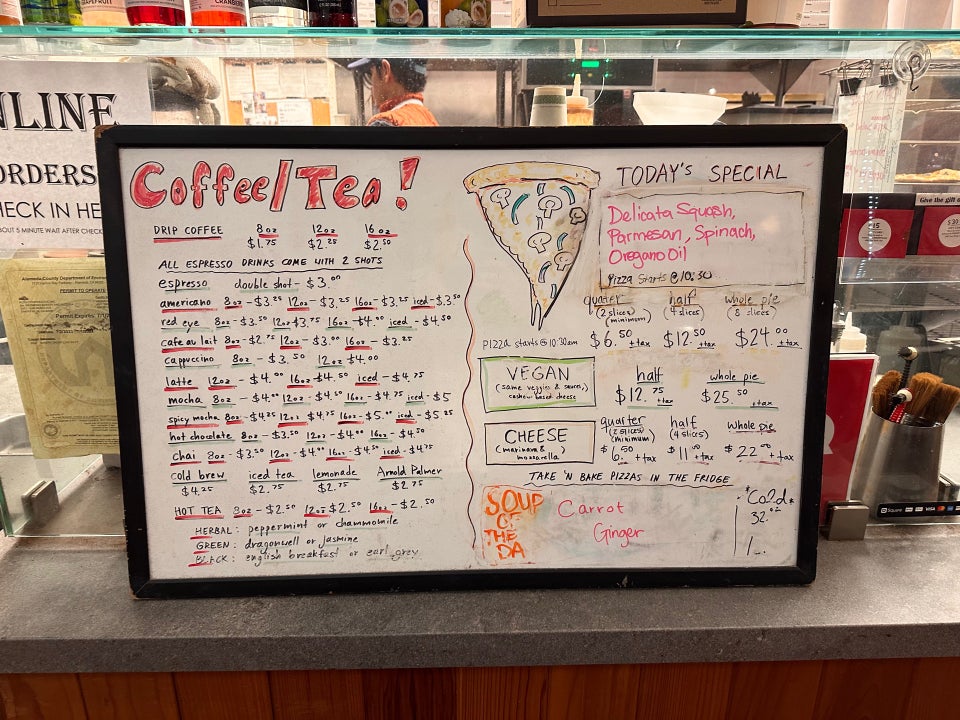 GRAPEFRUIT
CRANBERRY
NLINE
ORDERS
HECK IN HE
BOUT 5 MINUTE WAIT AFTER CHECK
Alameda County Department of Environ
PERMIT TO OPERATE
Permit Expires:
Coffee/Tea!
DRIP COFFEE 8oz 12oz 16oz
$1.75 $2.25 $2.50
ALL ESPRESSO DRINKS COME WITH 2 SHOTS
espresso double shot - $3.00
americano 8oz - $3.25 12oz - $3.25 16oz - $3.25 iced - $3.50
red eye 8oz - $3.50 12oz $3.75 16oz - $4.00 iced - $4.50
cafe au lait 8oz - $2.75 12oz - $3.00 16oz - $3.25
cappuccino 8oz - $3.50 12oz $4.00
latte 12oz - $4.00 16oz - $4.50 iced - $4.75
mocha 8oz - $4.00 12oz - $4.50 16oz - $4.75 iced - $5
spicy mocha 8oz - $4.25 12oz - $4.75 16oz - $5.00 iced - $5.25
hot chocolate 8oz - $3.50 12oz - $4.00 16oz - $4.50
chai 8oz - $3.50 12oz - $4.00 16oz - $4.50 iced - $4.75
cold brew iced tea lemonade Arnold Palmer
$4.25 $2.75 $2.75 $2.75
HOT TEA 8oz - $2.50 12oz $2.50 16oz - $2.50
HERBAL: peppermint or chammomile
GREEN: dragonwell or jasmine
BLACK: english breakfast or earl grey
TODAY'S SPECIAL
Delicata Squash,
Parmesan, Spinach,
Oregano Oil
Pizza Starts @ 10:30
quarter half whole pie
(2 slices) (4 slices) (8 slices)
(minimum)
pizza starts @ 10:30am $6.50 +tax $12.50 +tax $24.00 +tax
VEGAN
(same veggies & sauces,)
cashew based cheese
half whole pie
$12.75 +tax $25.50 +tax
CHEESE
(marinara &)
mozzarella
quarter half whole pie
(2 slices) (4 slices)
(minimum)
$6.50 +tax $11.00 +tax $22.00 +tax
TAKE 'N BAKE PIZZAS IN THE FRIDGE
SOUP
OF
THE
DA
Carrot
Ginger
*Cold*
32oz
Give the gift o
Square VISA